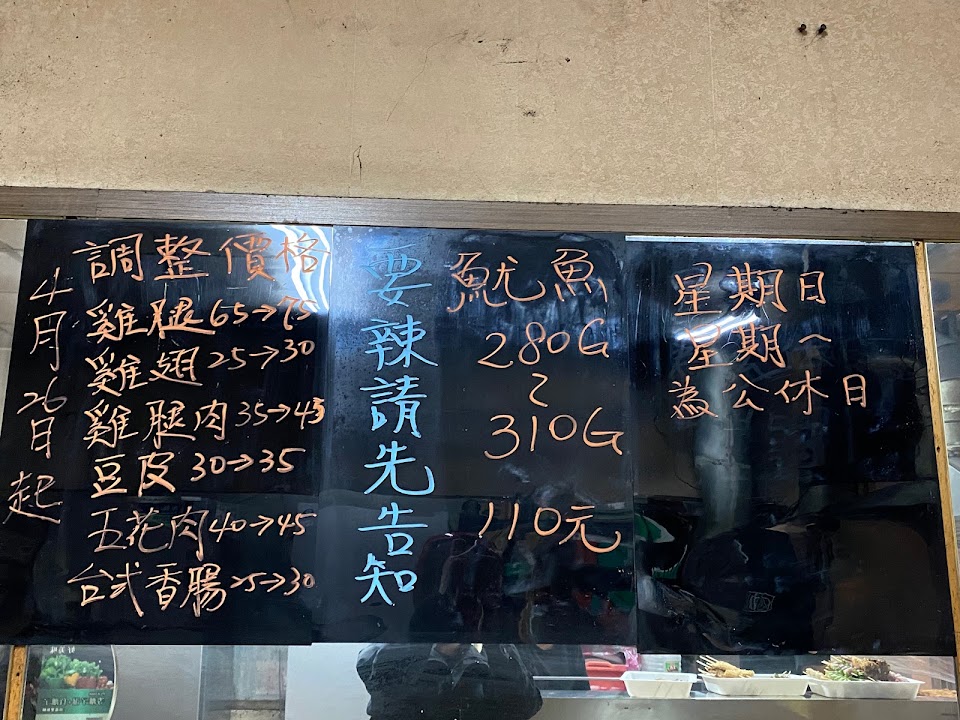 4月26日起
調整價格
雞腿65→75
雞翅25→30
雞腿肉35→45
豆皮30→35
五花肉40→45
台式香腸25→30
要辣請先告知
魷魚
280G
~
310G
110元
星期日
星期一
為公休日